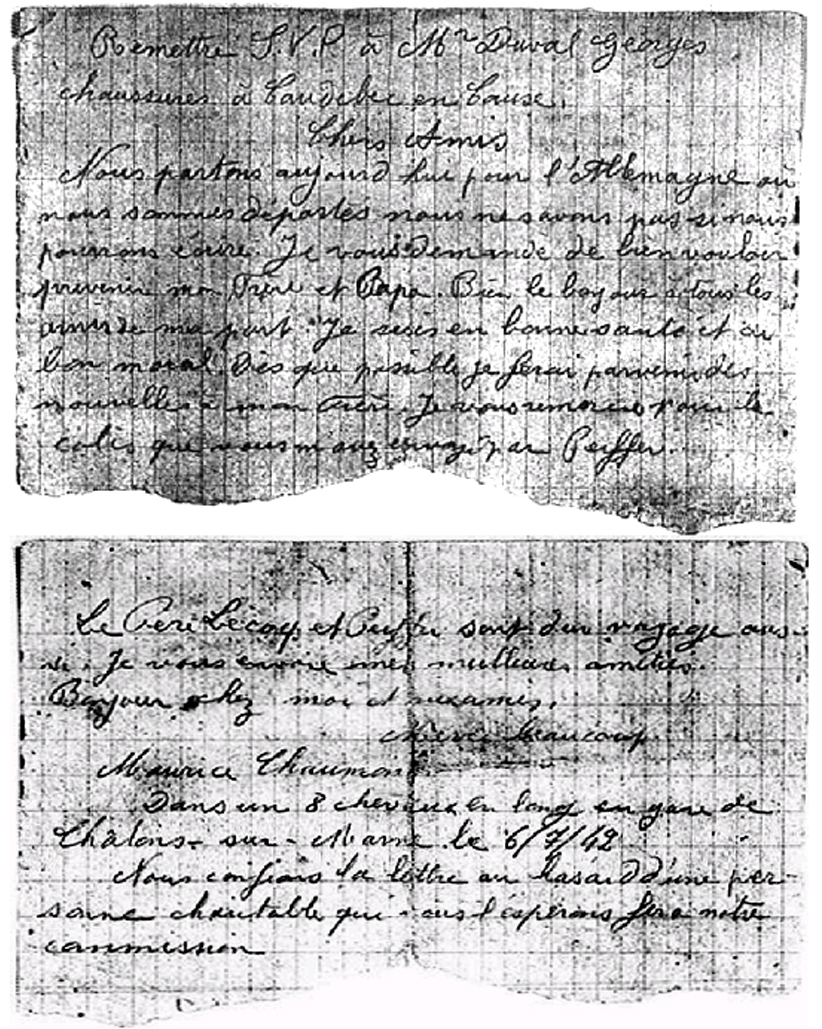 Remettre S.V.P à Mr Duval Georges
chaussures à Caudebec en Cause.
Chers Amis
Nous partons aujourd hui pour l'Allemagne où
nous sommes déportés nous ne savons pas si nous
pourrons écrire. Je vous demande de bien vouloir
prévenir mon Frère et Papa. Bien le bonjour à tous les
amis de ma part. Je suis en bonne santé et au
bon moral. Dès que possible je ferai parvenir des
nouvelles à mon Frère. Je vous remercie pour le
colis que vous m'avez envoyé par Peiffer.
Le Père Lecoq et Peiffer sont du voyage aus-
si. Je vous envoie mes meilleures amitiés.
Bonjour chez moi et aux amis.
Merci beaucoup
Maurice Chaumont
Dans un 8 chevaux en long en gare de
Châlons-sur-Marne le 6/7/42
Nous confions la lettre au hasard d'une per-
sonne charitable qui nous l'espérons fera notre
commission